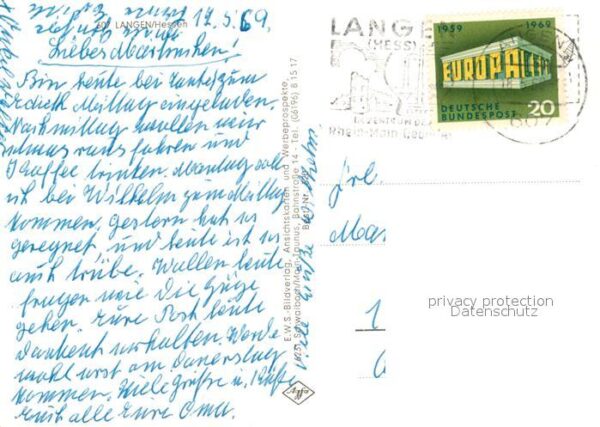 607 LANGEN/Hessen
17.5.69.
Liebes Martinchen!
Bin heute bei Tante
Edith Mittag eingeladen.
Nachmittag wollen wir
etwas raus fahren und
Kaffee trinken. Montag soll
ich bei Wilhelm zum Mittag
kommen. Gestern hat es
geregnet, und heute ist es
auch trübe. Wollen heute
fragen wie die Züge
gehen. Eure Post heute
dankend erhalten. Werde
wohl erst am Donnerstag
kommen. Viele Grüße u. Küsse
Euch alle Eure Oma.
Viele Grüße
E.W.S.-Bildverlag, Ansichtskarten und Werbeprospekte,
6231 Schwalbach/Main-Taunus, Bahnstraße 14 - Tel. (06196) 8 15 17
Agfa
LANGEN
(HESS)
IM ZENTRUM DES
Rhein-Main-Gebiet
607
1959 1969
EUROPA CEPT
DEUTSCHE
BUNDESPOST 20
Frl.
Ma
1
privacy protection
Datenschutz